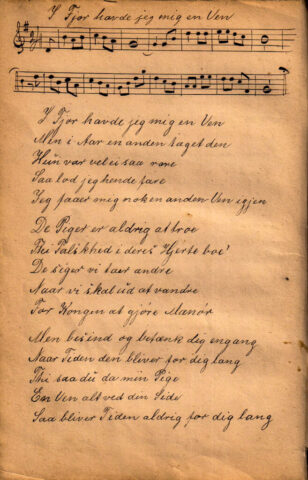 I Fjor havde jeg mig en Ven
I Fjor havde jeg mig en Ven
Men i Aar en anden taget den
Hun var vel ei saa rare
Saa lod jeg hende fare
Jeg faaer mig nok en anden Ven igjen
De Piger er aldrig at troe
Thi Falskhed i deres Hjerte boe
De siger vi taer andre
Naar vi skal ud at vandre
For Kongen at gjöre Manör
Men besind og betænk dig engang
Naar Tiden den bliver for dig lang
Thi saa du da men Pige
En Ven alt ved din Side
Saa bliver Tiden aldrig for dig lang